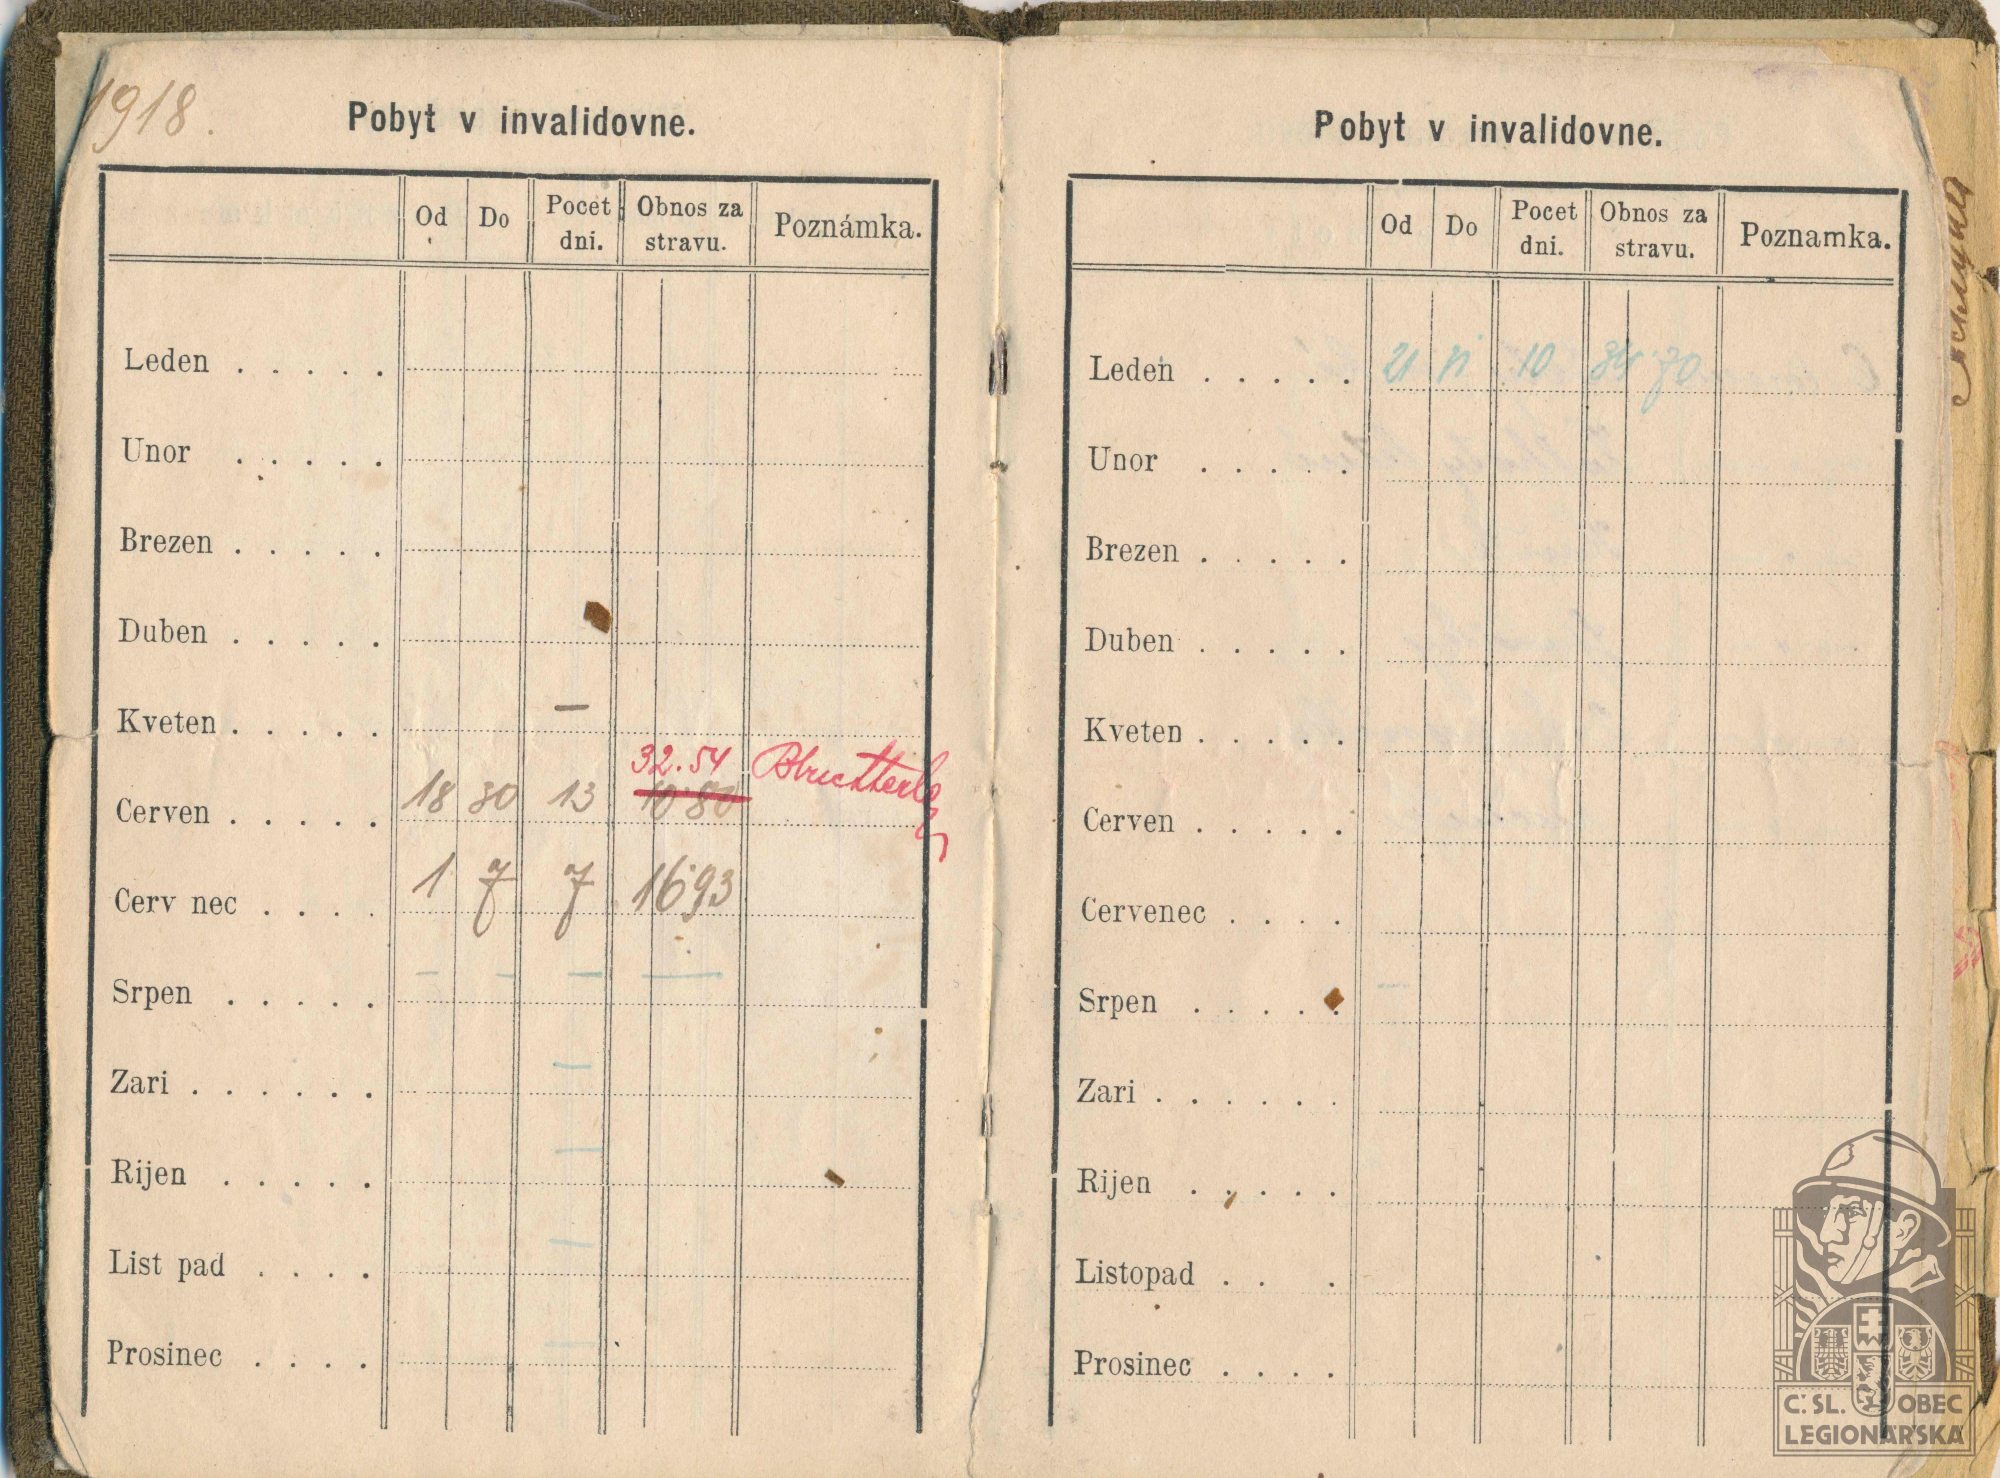 1918.
Pobyt v invalidovne.
Od Do Pocet dni. Obnos za stravu. Poznámka.
Leden . . . . .
Unor . . . . .
Brezen . . . . .
Duben . . . . .
Kveten . . . . . —
32.54
Cerven . . . . . 18 30 13 10 80
Cerv nec . . . . 1 7 7 16 93
Srpen . . . . . – – – —
Zari . . . . . . –
Rijen . . . . . –
List pad . . . . –
Prosinec . . . . –
Pobyt v invalidovne.
Od Do Pocet dni. Obnos za stravu. Poznamka.
Leden . . . . . 21 10 70
Unor . . . . .
Brezen . . . . .
Duben . . . . .
Kveten . . . . .
Cerven . . . . .
Cervenec . . . .
Srpen . . . . .
Zari . . . . . .
Rijen . . . . .
Listopad . . .
Prosinec . . . .
Č. SL. OBEC
LEGIONÁŘSKÁ